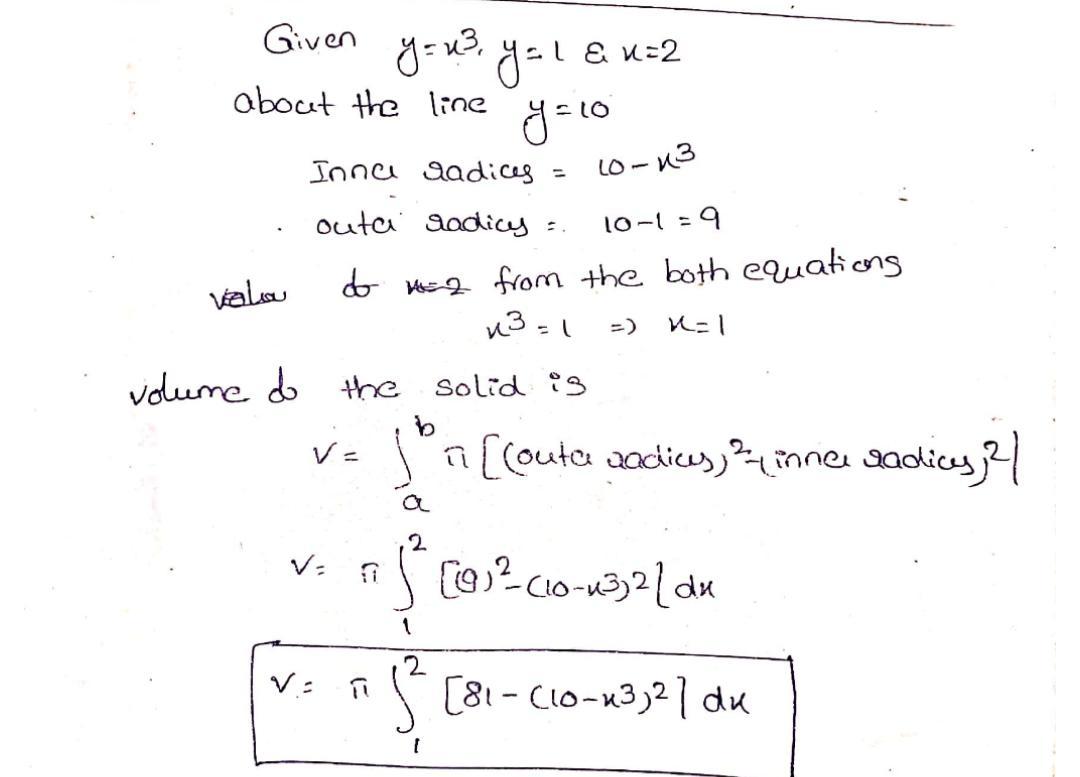 Given y=x³, y=1 & x=2
about the line y=10
Inner radius = 10-x³
outer radius = 10-1=9
from the both equations
x³=1 => x=1
volume of the solid is
V= ∫ₐᵇ π[(outer radius)²-(inner radius)²]
V= π∫₁² [(9)²-(10-x³)²] dx
V= π∫₁² [81-(10-x³)²] dx